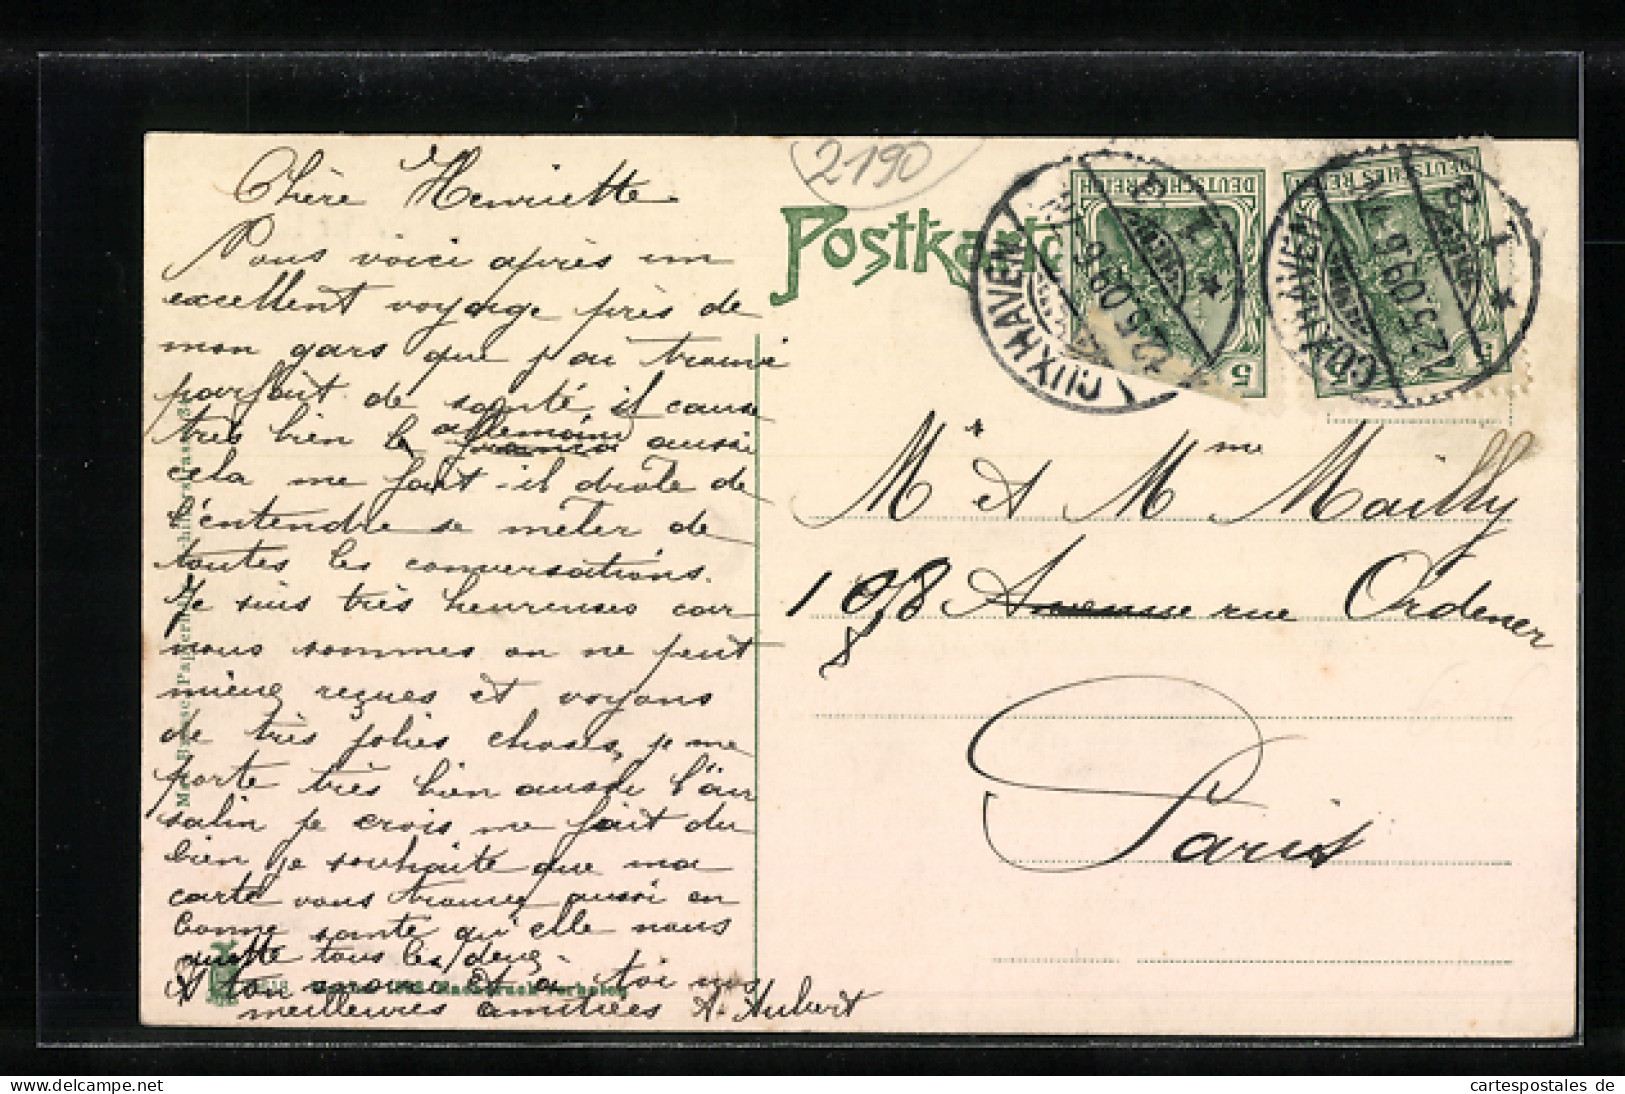 Chère Henriette
Nous voici après un
excellent voyage près de
mon gars que j'ai trouvé
parfait de santé, il cause
très bien le allemain aussi
cela me fait-il drole de
l'entendre se mèler de
toutes les conversations.
Je suis très heureuses car
nous sommes on ne peut
mieux reçues et voyons
de très jolies choses, je me
porte très bien aussi l'air
salin je crois me fait du
bien je souhaite que ma
carte vous trouve aussi en
bonne santé qu'elle nous
quitte tous les deux.
A ton et à toi nos
meilleures amitiées A. Aubert
2190
Postkarte
DEUTSCHES REICH
5
CUXHAVEN
1
*
22.6.09
DEUTSCHES REICH
5
CUXHAVEN
1
*
Mr et Mme Mailly
198 rue Ordener
Paris
Nachdruck verboten
cartespostales de